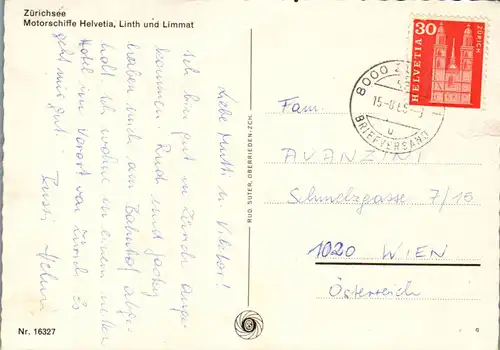 Zürichsee
Motorschiffe Helvetia, Linth und Limmat
Liebe Mutti u. Viktor!
Ich bin gut in Zürich ange-
kommen. Rudi und
haben mich am Bahnhof abge-
holt. Ich wohne in einem netten
Hotel im Vorort von Zürich. Es
geht mir gut.
Bussi
Nr. 16327
RUD. SUTER, OBERRIEDEN-ZCH.
HELVETIA
30
ZÜRICH
8000
BRIEFVERSAND
Fam.
AVANZINI
Schmelzgasse 7/15
1020 WIEN
Österreich